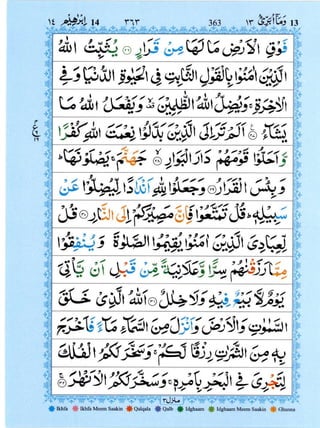 ١٤ اِبْرٰهِيْم 14 ٣٦٣ 363 وَمَآ اُبَرِّئُ ١٣ 13
فَوْقِ الْاَرْضِ مَا لَهَا مِنْ قَرَارٍ ﴿٢٦﴾ يُثَبِّتُ اللّٰهُ
الَّذِيْنَ اٰمَنُوْا بِالْقَوْلِ الثَّابِتِ فِي الْحَيٰوةِ الدُّنْيَا وَفِي
الْاٰخِرَةِ ۚ وَيُضِلُّ اللّٰهُ الظّٰلِمِيْنَ ۙ وَيَفْعَلُ اللّٰهُ مَا
يَشَآءُ ﴿٢٧﴾ اَلَمْ تَرَ اِلَى الَّذِيْنَ بَدَّلُوْا نِعْمَتَ اللّٰهِ كُفْرًا
وَّاَحَلُّوْا قَوْمَهُمْ دَارَ الْبَوَارِ ﴿٢٨﴾ جَهَنَّمَ ۚ يَصْلَوْنَهَا ؕ
وَبِئْسَ الْقَرَارُ ﴿٢٩﴾ وَجَعَلُوْا لِلّٰهِ اَنْدَادًا لِّيُضِلُّوْا عَنْ
سَبِيْلِهٖ ؕ قُلْ تَمَتَّعُوْا فَاِنَّ مَصِيْرَكُمْ اِلَى النَّارِ ﴿٣٠﴾ قُلْ
لِّعِبَادِيَ الَّذِيْنَ اٰمَنُوْا يُقِيْمُوا الصَّلٰوةَ وَيُنْفِقُوْا
مِمَّا رَزَقْنٰهُمْ سِرًّا وَّعَلَانِيَةً مِّنْ قَبْلِ اَنْ يَّاْتِيَ
يَوْمٌ لَّا بَيْعٌ فِيْهِ وَلَا خِلٰلٌ ﴿٣١﴾ اَللّٰهُ الَّذِيْ خَلَقَ
السَّمٰوٰتِ وَالْاَرْضَ وَاَنْزَلَ مِنَ السَّمَآءِ مَآءً فَاَخْرَجَ
بِهٖ مِنَ الثَّمَرٰتِ رِزْقًا لَّكُمْ ۚ وَسَخَّرَ لَكُمُ الْفُلْكَ
لِتَجْرِيَ فِي الْبَحْرِ بِاَمْرِهٖ ۚ وَسَخَّرَ لَكُمُ الْاَنْهٰرَ ﴿٣٢﴾
منزل ٣
Ikhfa Ikhfa Meem Saakin Qalqala Qalb Idghaam Idghaam Meem Saakin Ghunna